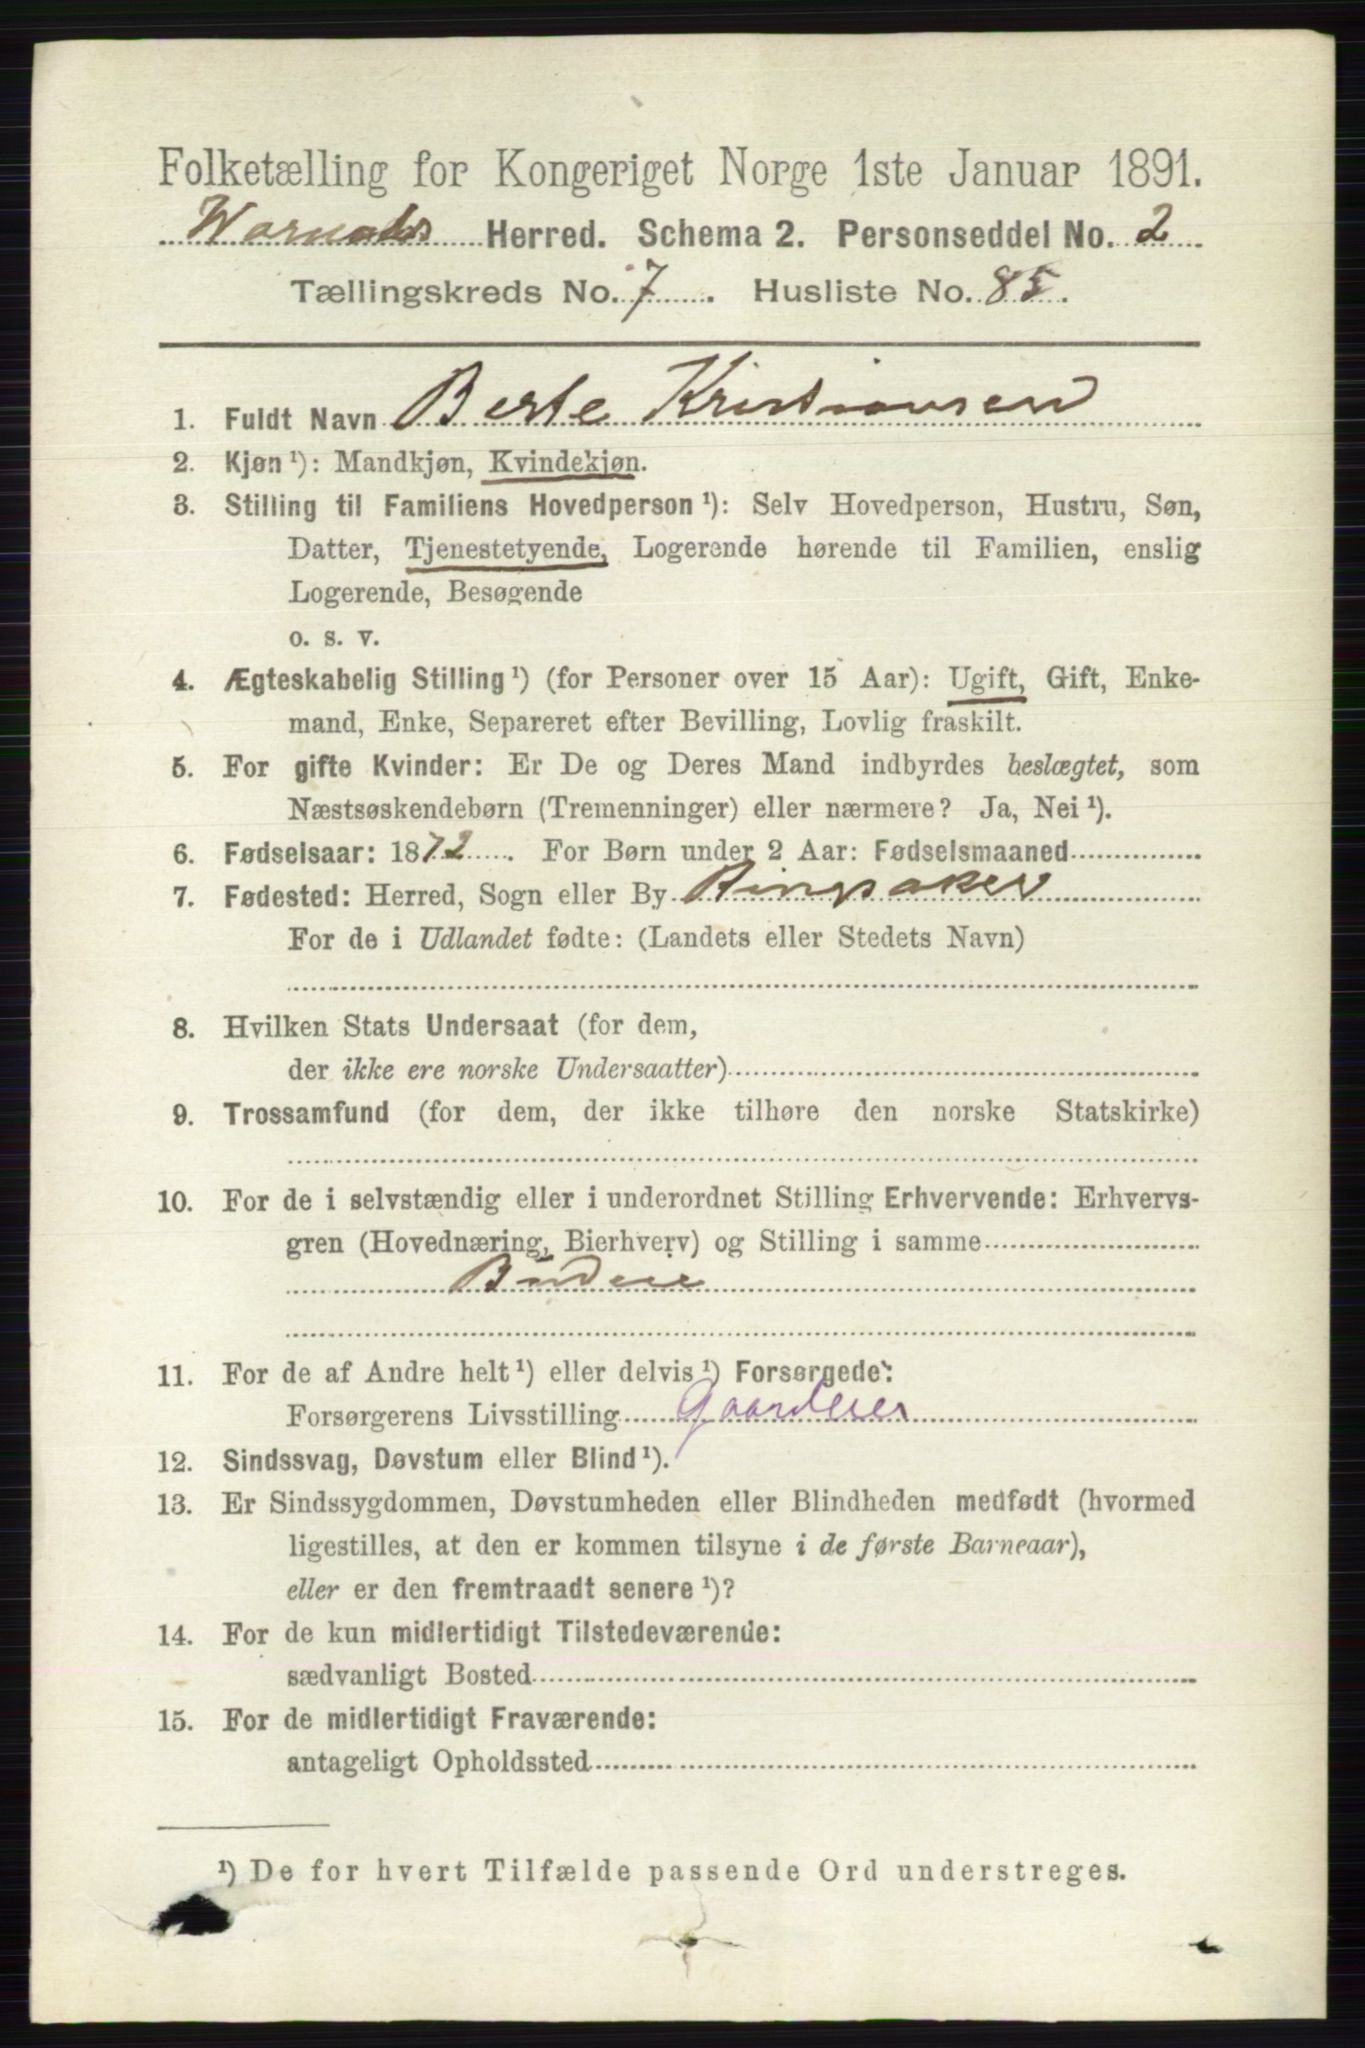 Folketælling for Kongeriget Norge 1ste Januar 1891.
Herred. Schema 2. Personseddel No. 2
Tællingskreds No. 7. Husliste No. 85.
1. Fuldt Navn Berte Kristiansen
2. Kjøn ¹): Mandkjøn, Kvindekjøn.
3. Stilling til Familiens Hovedperson ¹): Selv Hovedperson, Hustru, Søn,
Datter, Tjenestetyende, Logerende hørende til Familien, enslig
Logerende, Besøgende
o. s. v.
4. Ægteskabelig Stilling ¹) (for Personer over 15 Aar): Ugift, Gift, Enke-
mand, Enke, Separeret efter Bevilling, Lovlig fraskilt.
5. For gifte Kvinder: Er De og Deres Mand indbyrdes beslægtet, som
Næstsøskendebørn (Tremenninger) eller nærmere? Ja, Nei ¹).
6. Fødselsaar: 1872. For Børn under 2 Aar: Fødselsmaaned
7. Fødested: Herred, Sogn eller By Ringsaker
For de i Udlandet fødte: (Landets eller Stedets Navn)
8. Hvilken Stats Undersaat (for dem,
der ikke ere norske Undersaatter)
9. Trossamfund (for dem, der ikke tilhøre den norske Statskirke)
10. For de i selvstændig eller i underordnet Stilling Erhvervende: Erhvervs-
gren (Hovednæring, Bierhverv) og Stilling i samme
Budeie
11. For de af Andre helt ¹) eller delvis ¹) Forsørgede:
Forsørgerens Livsstilling Gaardeier
12. Sindssvag, Døvstum eller Blind ¹).
13. Er Sindssygdommen, Døvstumheden eller Blindheden medfødt (hvormed
ligestilles, at den er kommen tilsyne i de første Barneaar),
eller er den fremtraadt senere ¹)?
14. For de kun midlertidigt Tilstedeværende:
sædvanligt Bosted
15. For de midlertidigt Fraværende:
antageligt Opholdssted
¹) De for hvert Tilfælde passende Ord understreges.